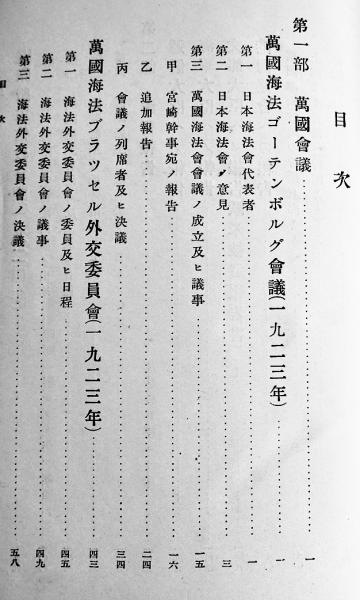 目次
第一部 萬國會議 一
萬國海法ゴーテンボルグ會議(一九二三年) 一
第一 日本海法會代表者 一
第二 日本海法會ノ意見 三
第三 萬國海法會會議ノ成立及ヒ議事 一五
甲 宮崎幹事宛ノ報告 一六
乙 追加報告 二四
丙 會議ノ列席者及ヒ決議 三四
萬國海法ブラツセル外交委員會(一九二三年) 四三
第一 海法外交委員會ノ委員及ヒ日程 四五
第二 海法外交委員會ノ議事 四九
第三 海法外交委員會ノ決議 五八
目次